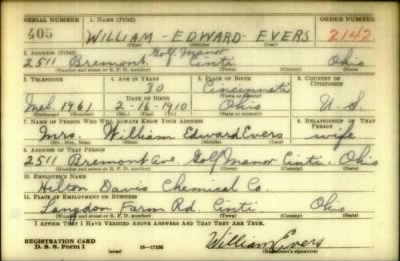 SERIAL NUMBER 1. NAME (Print) ORDER NUMBER
405 WILLIAM - EDWARD - EVERS 2142
(First) (Middle) (Last)
2. ADDRESS (Print) Golf Manor
2511 Bremont Cinti Ohio
(Number and street or R. F. D. number) (Town) (County) (State)
3. TELEPHONE 4. AGE IN YEARS 5. PLACE OF BIRTH 6. COUNTRY OF CITIZENSHIP
30 Cincinnati
Mel. 1961 DATE OF BIRTH
2-16-1910 Ohio U.S.
(Exchange) (Number) (Mo.) (Day) (Yr.) (State or country)
7. NAME OF PERSON WHO WILL ALWAYS KNOW YOUR ADDRESS 8. RELATIONSHIP OF THAT PERSON
Mrs. William Edward Evers wife
(Mr., Mrs., Miss) (First) (Middle) (Last)
9. ADDRESS OF THAT PERSON
2511 Bremont Ave. Golf Manor Cinti. Ohio
(Number and street or R. F. D. number) (Town) (County) (State)
10. EMPLOYER'S NAME
Hilton Davis Chemical Co.
11. PLACE OF EMPLOYMENT OR BUSINESS
Langdon Farm Rd. Cinti. Ohio
(Number and street or R. F. D. number) (Town) (County) (State)
I AFFIRM THAT I HAVE VERIFIED ABOVE ANSWERS AND THAT THEY ARE TRUE.
REGISTRATION CARD
D. S. S. Form 1 16-17105 William Evers
(Registrant's signature)